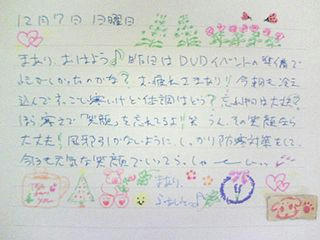 12月7日 日曜日
まあり、おはよう♪ 昨日はDVDイベントの準備で
忙しかったのかな? お疲れさまあり! 今朝も冷え
込んですっごし寒いけど体調はどう? 忘れ物は大丈夫?
ほら寒さで「笑顔」を忘れてるよ!笑 うん、その笑顔なら
大丈夫! 風邪引かないように、しっかり防寒対策をして、
今日も元気な笑顔でいこう。しゃーしぃ
まあり